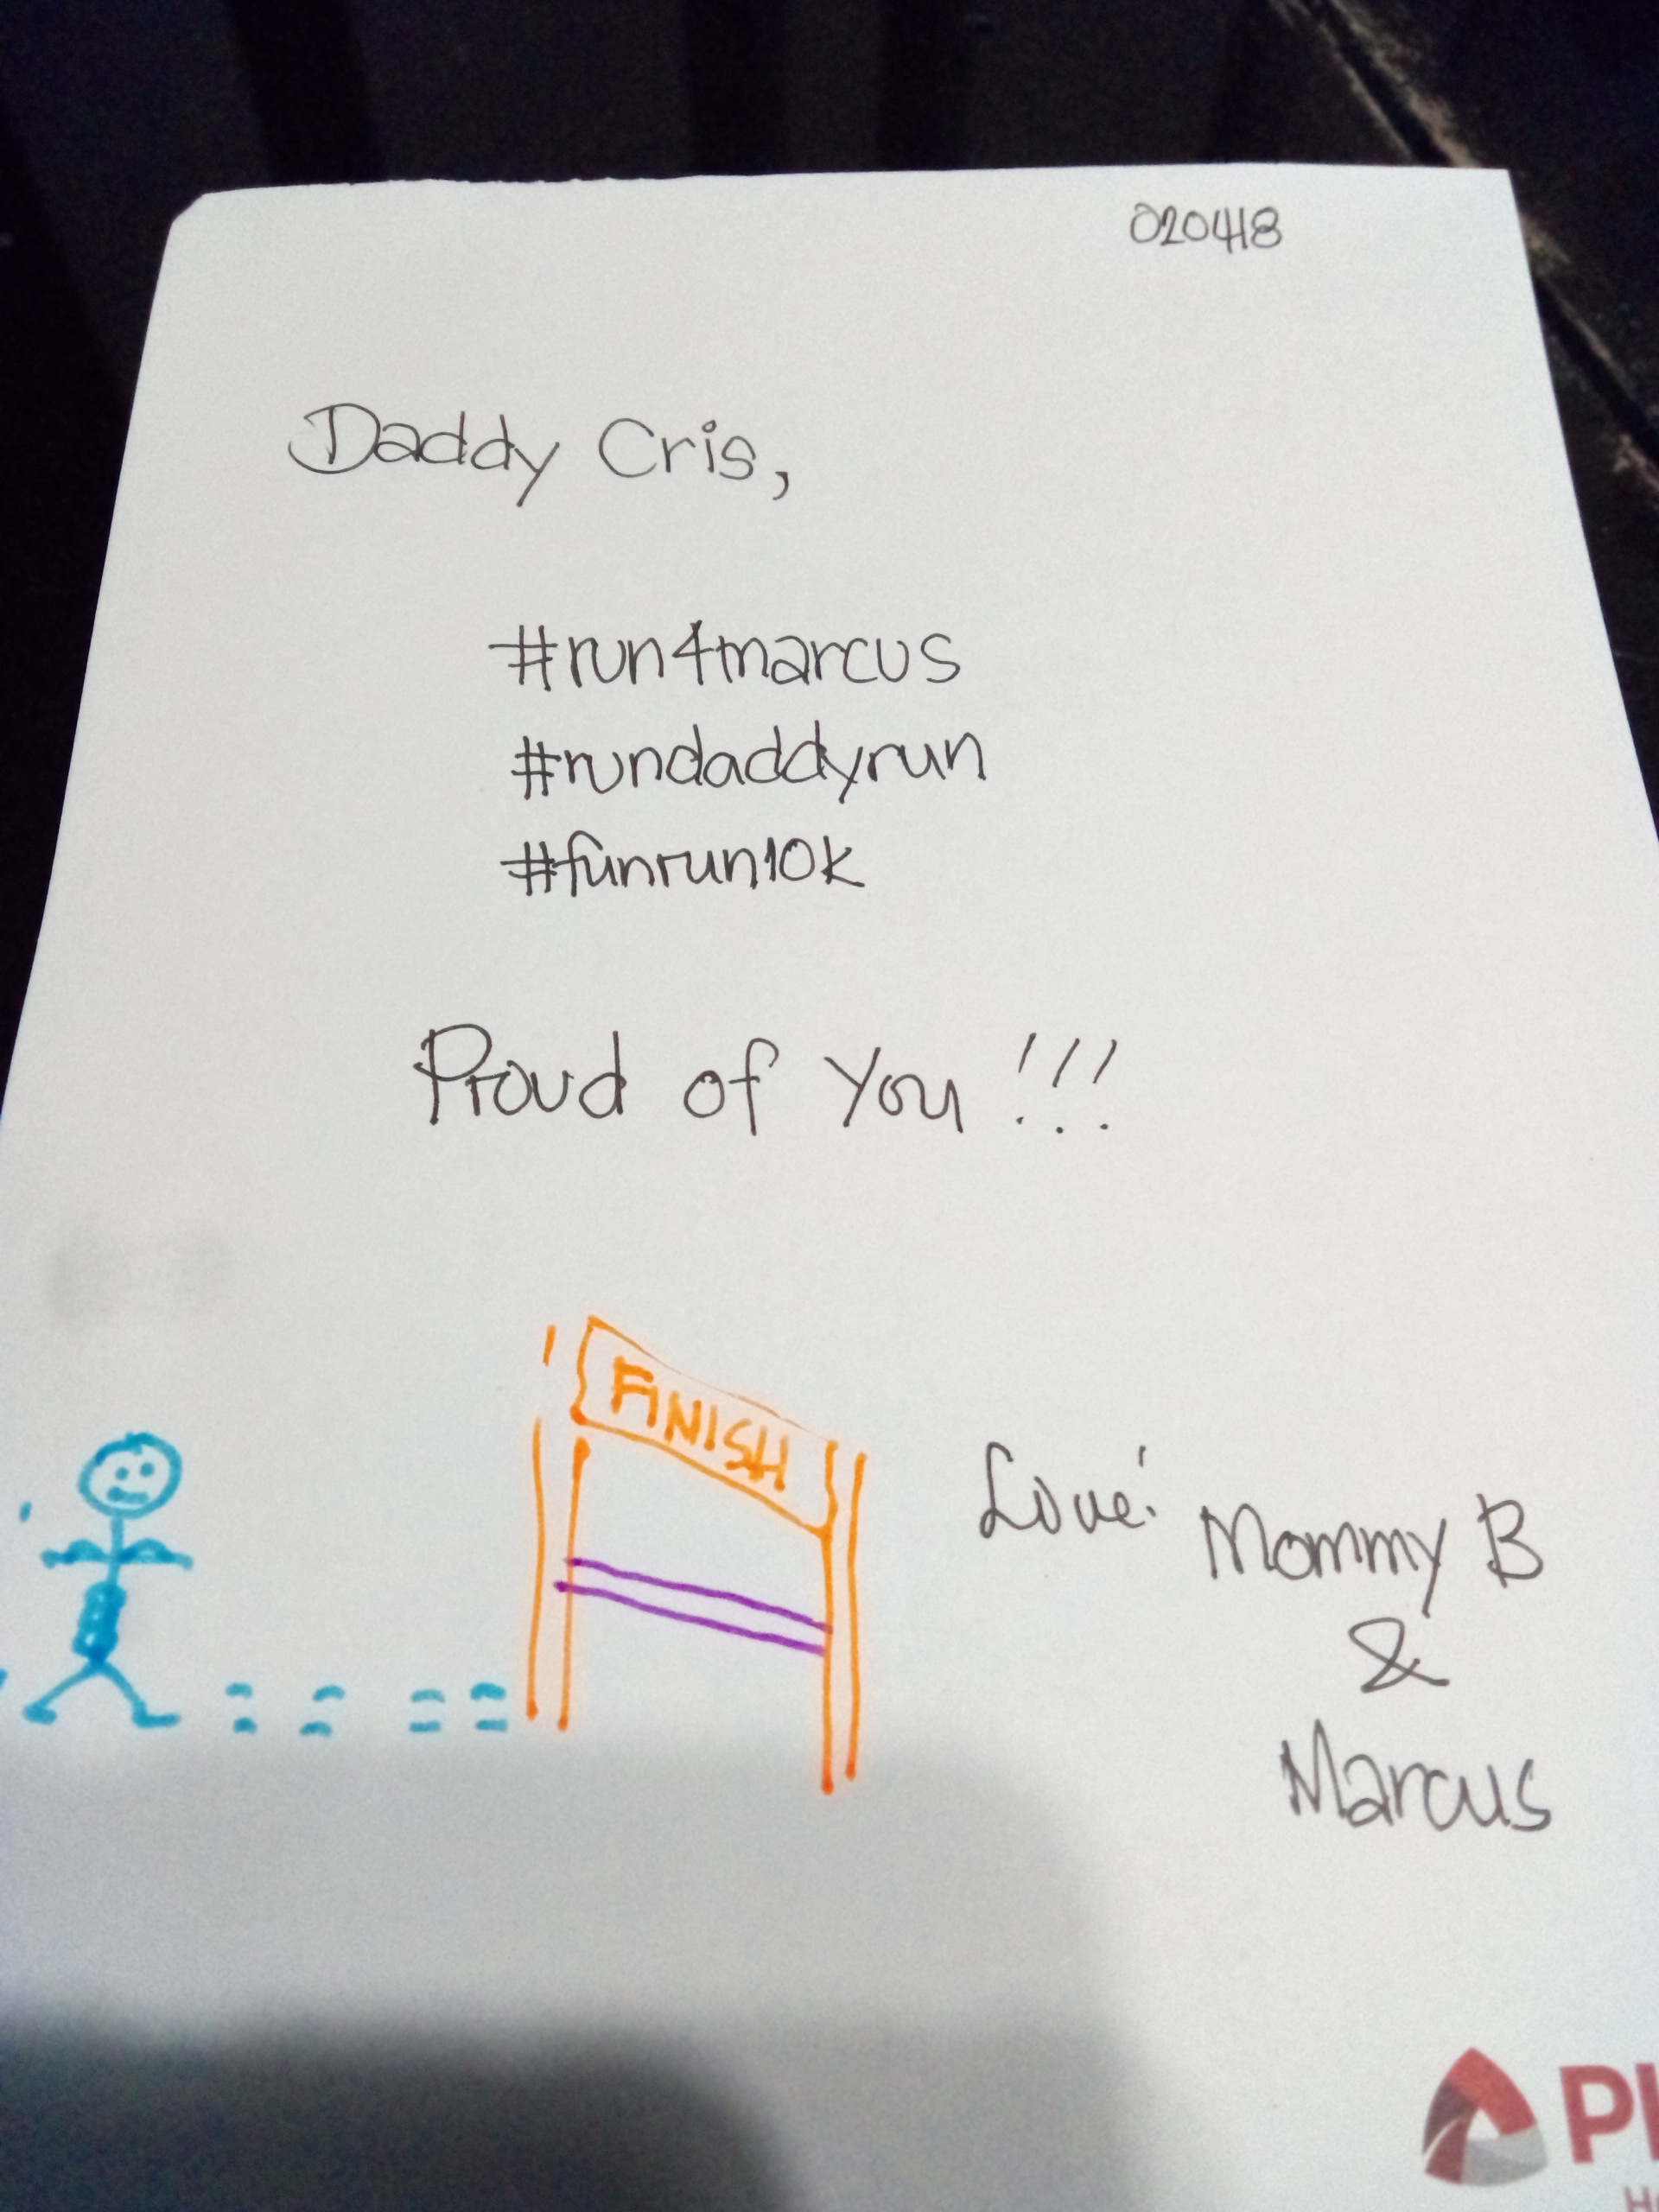 020418
Daddy Cris,
#run4marcus
#rundaddyrun
#funrun10k
Proud of You!!!
FINISH
Love: Mommy B
&
Marcus